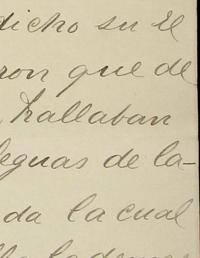 dicho su El
ron que de
hallaban
leguas de la-
da la cual